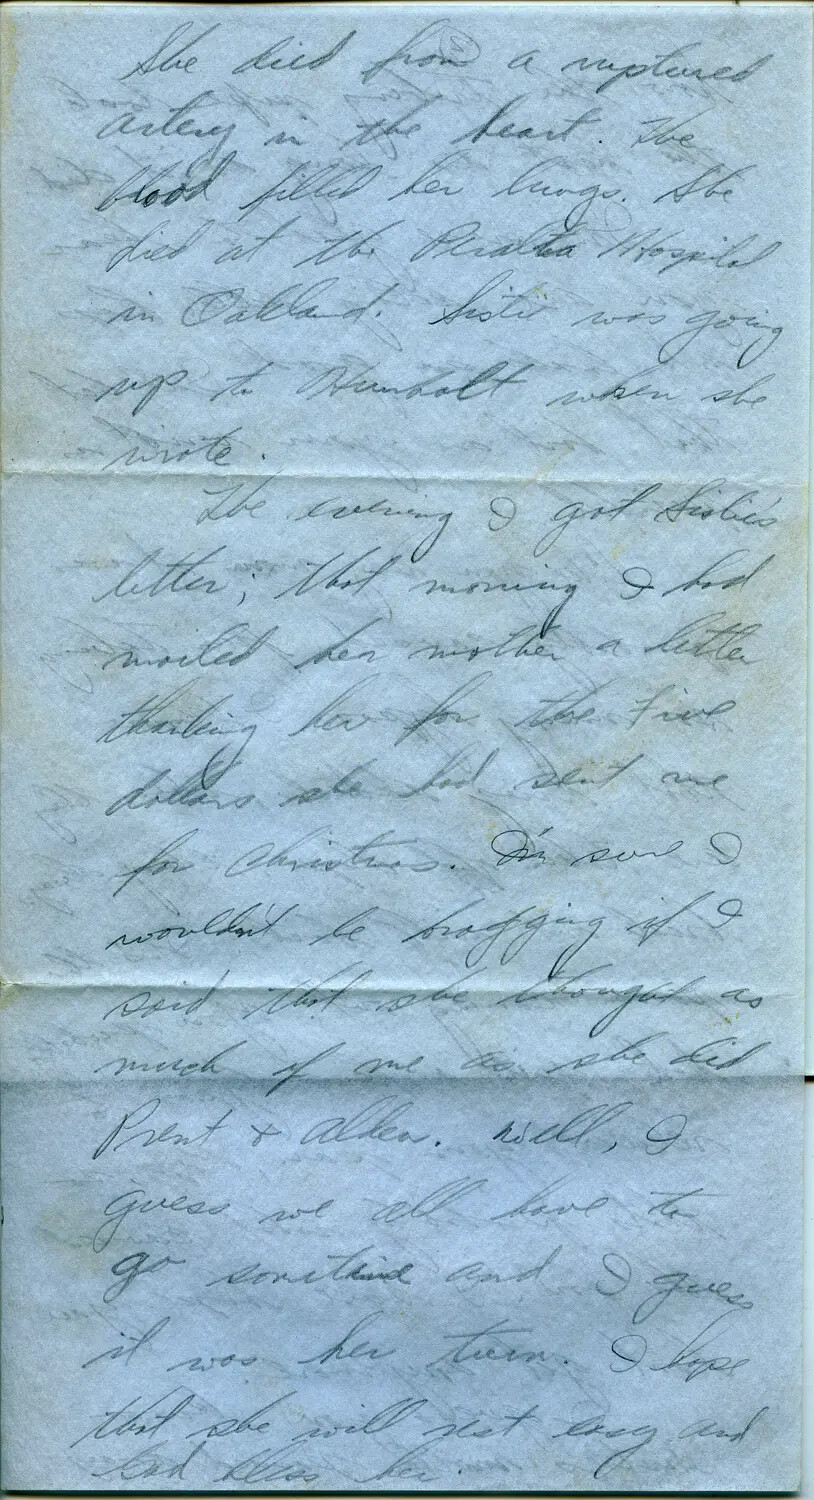 She died from a ruptured
artery in the heart. The
blood filled her lungs. She
died at the Peralta Hospital
in Oakland. Sistie was going
up to Humbolt when she
wrote.
The evening I got Sistie's
letter; that morning I had
mailed her mother a letter
thanking her for the Five
dollars she had sent me
for Christmas. I'm sure I
wouldn't be bragging if I
said that she thought as
much of me as she did
Prent & Alden. Well, I
guess we all have to
go sometime and I guess
it was her turn. I hope
that she will rest easy and
God bless her.